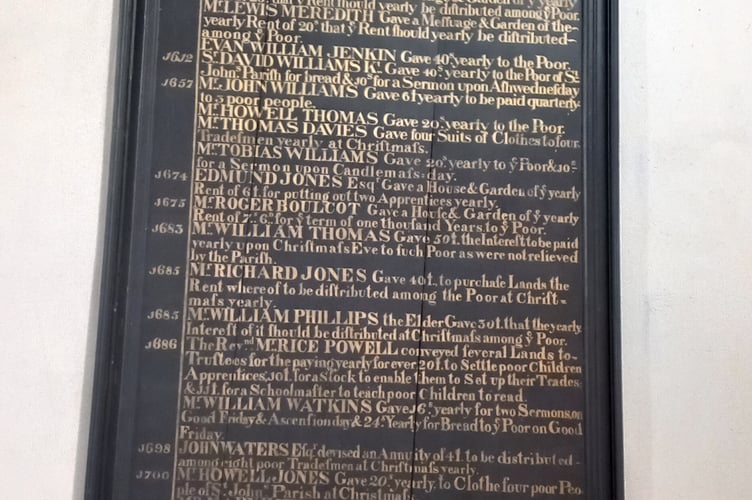 that ÿ Rent should yearly be distributed among ÿ Poor.
Mr. LEWIS MEREDITH Gave a Messuage & Garden of the
yearly Rent of 20s. that ÿ Rent should yearly be distributed
among ÿ Poor.
EVAN WILLIAM JENKIN Gave 40s. yearly to the Poor.
1612 Sr. DAVID WILLIAMS Kt. Gave 40s. yearly to the Poor of St.
Johns. Parish for bread & 10s. for a Sermon upon Ashwednesday
1657 Mr. JOHN WILLIAMS Gave 6l yearly to be paid quarterly
to 3 poor people.
Mr. HOWELL THOMAS Gave 20s. yearly to the Poor.
Mr. THOMAS DAVIES Gave four Suits of Clothes to four
Tradesmen yearly at Christmass.
Mr. TOBIAS WILLIAMS Gave 20s. yearly to ÿ Poor & 10s.
for a Sermon upon Candlemass-day.
1674 EDMUND JONES Esqr. Gave a House & Garden of ÿ yearly
Rent of 6l. for putting out two Apprentices yearly.
1675 Mr. ROGER BOULCOT Gave a House & Garden of ÿ yearly
Rent of 7s. 6d. for ÿ term of one thousand Years. to ÿ Poor.
1683 Mr. WILLIAM THOMAS Gave 50l. the Interest to be paid
yearly upon Christmass Eve to such Poor as were not relieved
by the Parish.
1685 Mr. RICHARD JONES Gave 40l. to purchase Lands the
Rent whereof to be distributed among the Poor at Christ=
mass yearly.
1685 Mr. WILLIAM PHILLIPS the Elder Gave 30l. that the yearly
Interest of it should be distributed at Christmass among ÿ Poor.
1686 The Revnd. Mr. RICE POWELL conveyed several Lands to
Trustees for the paying yearly for ever 20l. to Settle poor Children
Apprentices; 10l. for a stock to enable them to Set up their Trades
& 11l. for a Schoolmaster to teach poor Children to read.
Mr. WILLIAM WATKINS Gave 16s. yearly for two Sermons, on
Good Friday & Ascension day & 24s. Yearly for Bread to ÿ Poor on Good
Friday.
1698 JOHN WATERS Esqr. devised an Annuity of 4l. to be distributed
among eight poor Tradesmen at Christmass yearly.
1700 Mr. HOWELL JONES Gave 20s. yearly. to Clothe four poor Peo=
ple of St. Johns. Parish at Christmass